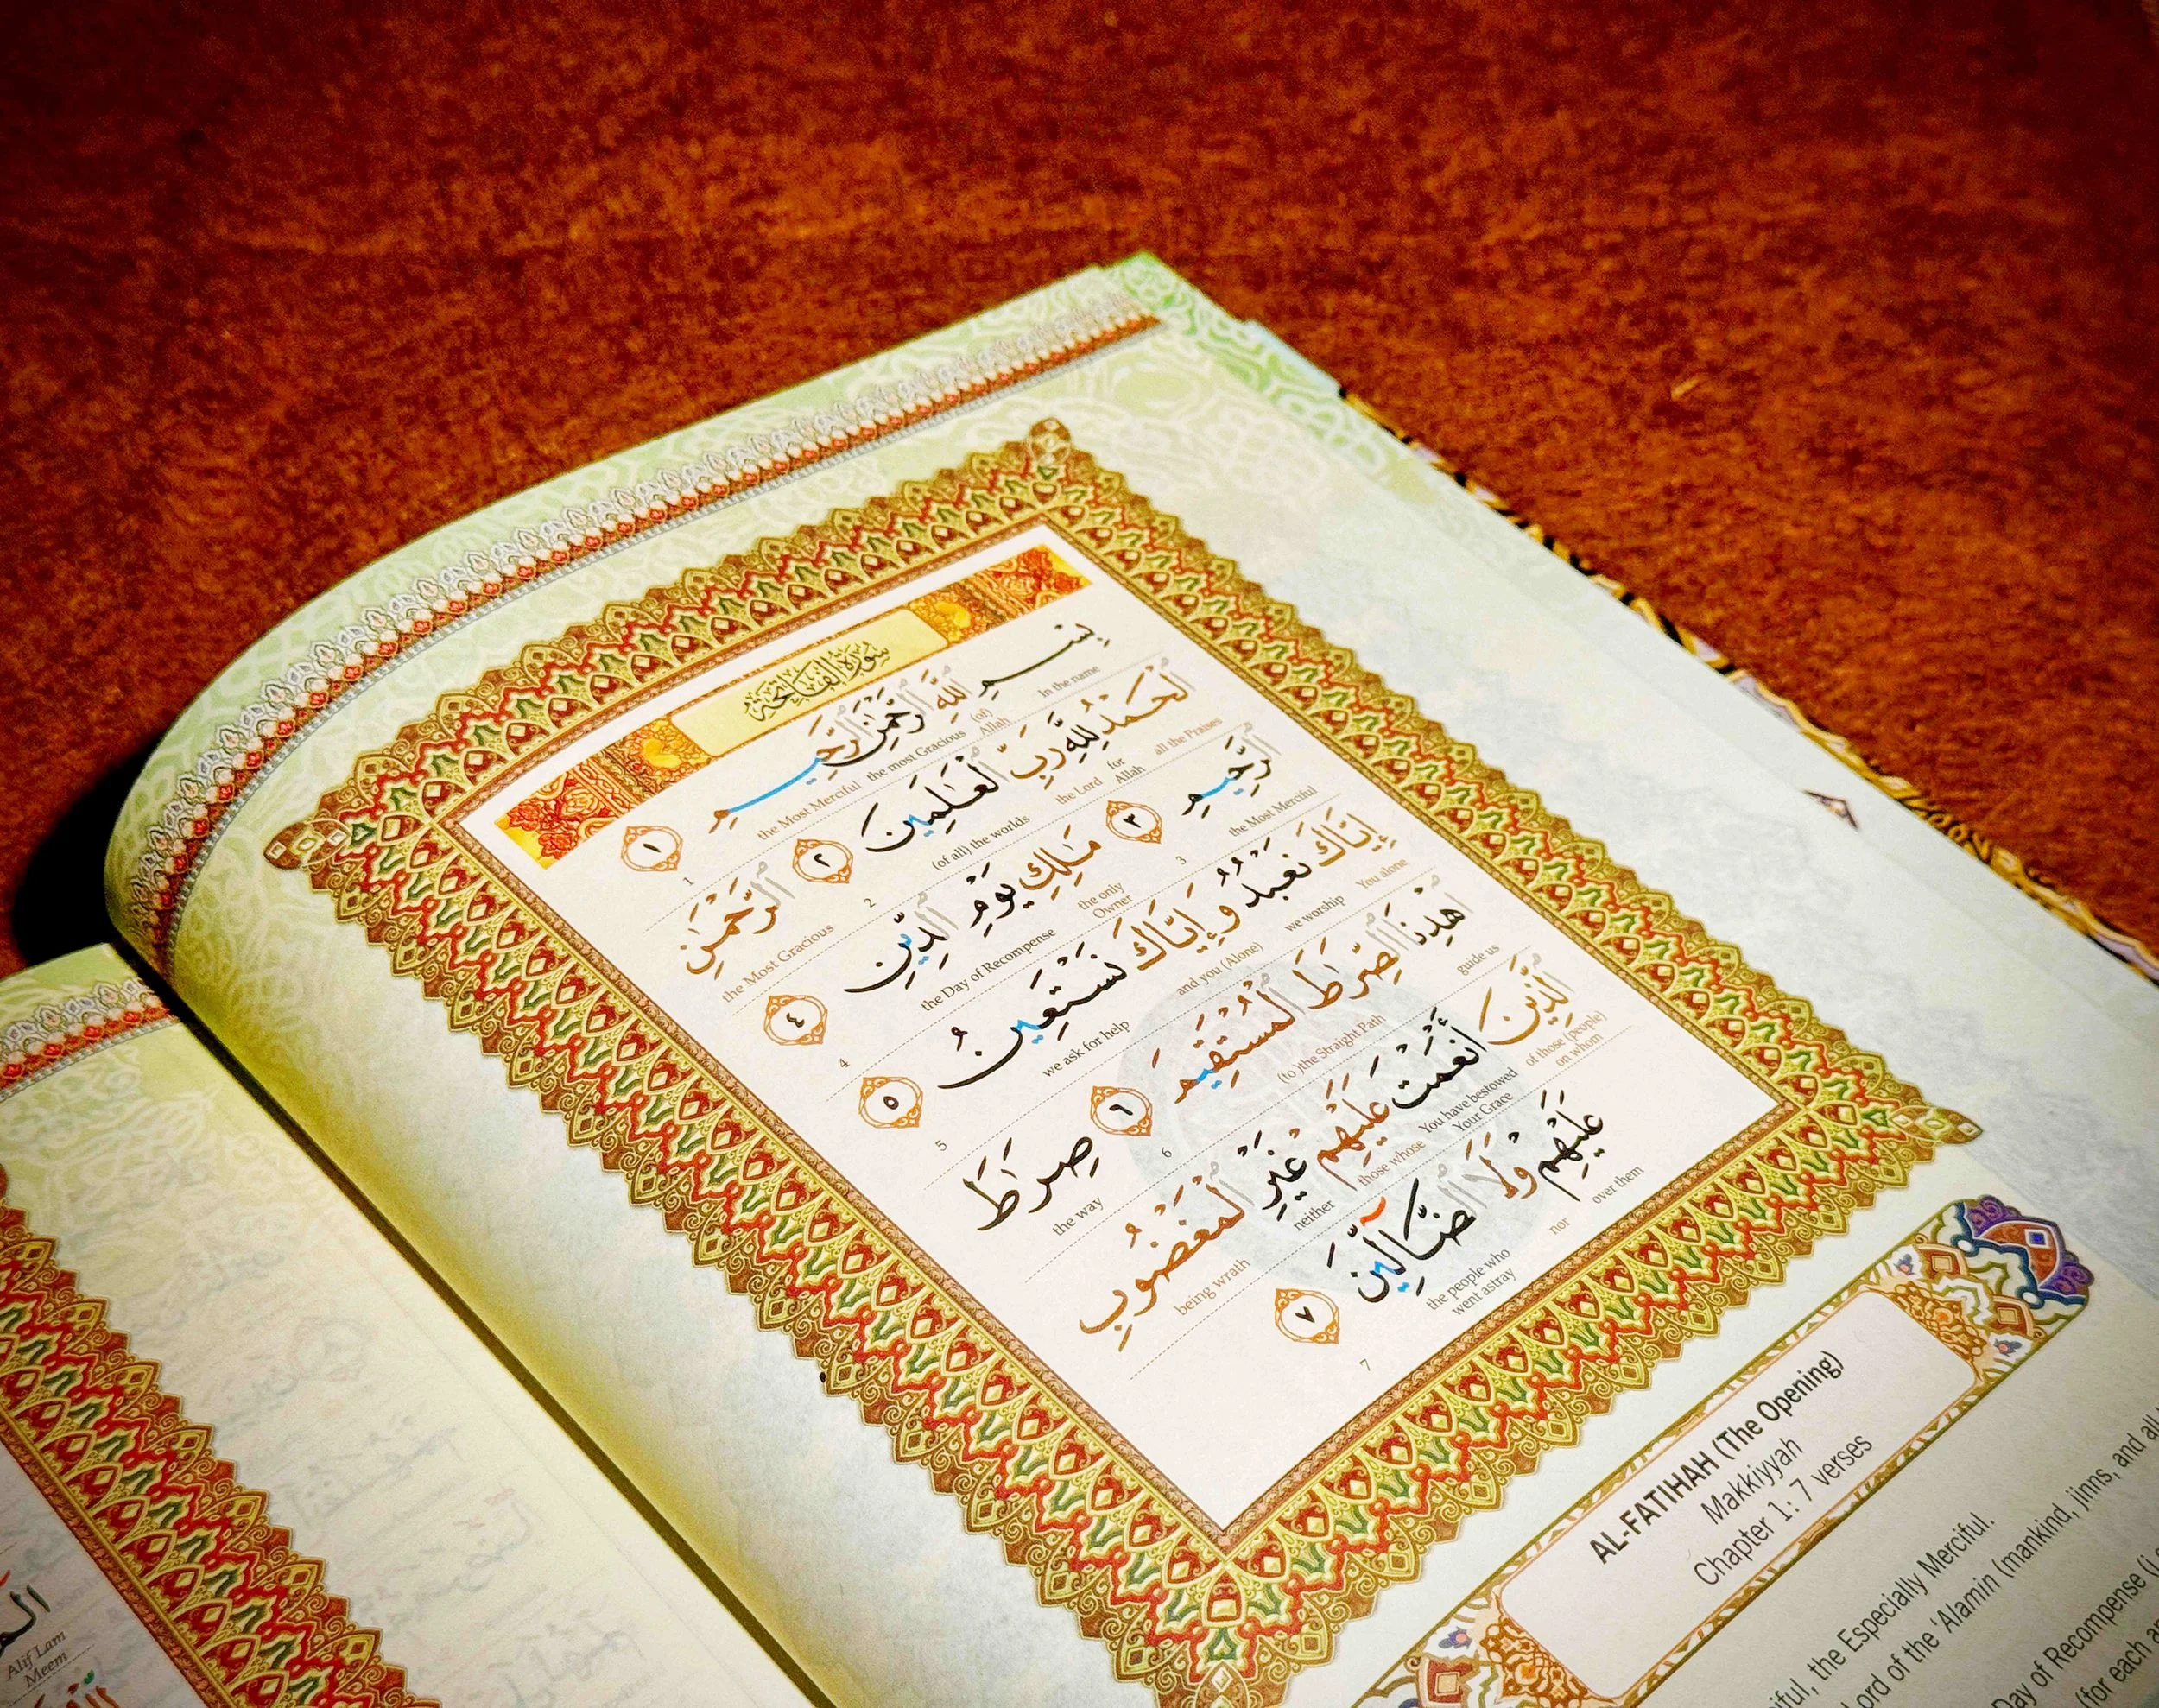 سُورَةُ الْفَاتِحَةِ
بِسْمِ اللَّهِ الرَّحْمَٰنِ الرَّحِيمِ ١
In the name (of) Allah the most Gracious the Most Merciful 1
الْحَمْدُ لِلَّهِ رَبِّ الْعَالَمِينَ ٢ الرَّحْمَٰنِ
all the Praises for Allah the Lord (of all) the worlds 2 the Most Gracious
الرَّحِيمِ ٣ مَالِكِ يَوْمِ الدِّينِ ٤
the Most Merciful 3 the only Owner the Day of Recompense 4
إِيَّاكَ نَعْبُدُ وَإِيَّاكَ نَسْتَعِينُ ٥
You alone we worship and you (Alone) we ask for help 5
اهْدِنَا الصِّرَاطَ الْمُسْتَقِيمَ ٦ صِرَاطَ
guide us (to )the Straight Path 6 the way
الَّذِينَ أَنْعَمْتَ عَلَيْهِمْ غَيْرِ الْمَغْضُوبِ
of those (people) on whom You have bestowed Your Grace those whose neither being wrath
عَلَيْهِمْ وَلَا الضَّالِّينَ ٧
over them nor the people who went astray 7
AL-FATIHAH (The Opening)
Makkiyyah
Chapter 1: 7 verses
the Especially Merciful.
Lord of the 'Alamin (mankind, jinns, and all
of Recompense
for each
Alif Lam
Meem